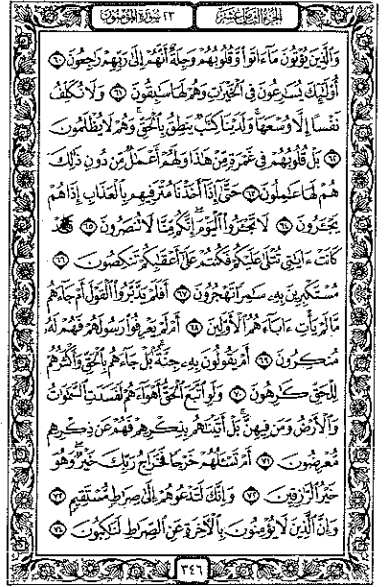 الجزء الثامن عشر
٢٣ سورة المؤمنون
وَالَّذِينَ يُؤْتُونَ مَا ءَاتَوا وَّقُلُوبُهُمْ وَجِلَةٌ أَنَّهُمْ إِلَىٰ رَبِّهِمْ رَاجِعُونَ ٦٠
أُوْلَٰٓئِكَ يُسَارِعُونَ فِي الْخَيْرَاتِ وَهُمْ لَهَا سَابِقُونَ ٦١ وَلَا نُكَلِّفُ
نَفْسًا إِلَّا وُسْعَهَا وَلَدَيْنَا كِتَابٌ يَنطِقُ بِالْحَقِّ وَهُمْ لَا يُظْلَمُونَ
٦٢ بَلْ قُلُوبُهُمْ فِي غَمْرَةٍ مِّنْ هَٰذَا وَلَهُمْ أَعْمَالٌ مِّن دُونِ ذَٰلِكَ
هُمْ لَهَا عَامِلُونَ ٦٣ حَتَّىٰ إِذَا أَخَذْنَا مُتْرَفِيهِم بِالْعَذَابِ إِذَا هُمْ
يَجْـَٔرُونَ ٦٤ لَا تَجْـَٔرُوا الْيَوْمَ إِنَّكُم مِّنَّا لَا تُنصَرُونَ ٦٥ قَدْ
كَانَتْ ءَايَاتِي تُتْلَىٰ عَلَيْكُمْ فَكُنتُمْ عَلَىٰ أَعْقَابِكُمْ تَنكِصُونَ ٦٦
مُسْتَكْبِرِينَ بِهِ سَامِرًا تَهْجُرُونَ ٦٧ أَفَلَمْ يَدَّبَّرُوا الْقَوْلَ أَمْ جَاءَهُم
مَّا لَمْ يَأْتِ ءَابَاءَهُمُ الْأَوَّلِينَ ٦٨ أَمْ لَمْ يَعْرِفُوا رَسُولَهُمْ فَهُمْ لَهُ
مُنكِرُونَ ٦٩ أَمْ يَقُولُونَ بِهِ جِنَّةٌ بَلْ جَاءَهُم بِالْحَقِّ وَأَكْثَرُهُمْ
لِلْحَقِّ كَارِهُونَ ٧٠ وَلَوِ اتَّبَعَ الْحَقُّ أَهْوَاءَهُمْ لَفَسَدَتِ السَّمَاوَاتُ
وَالْأَرْضُ وَمَن فِيهِنَّ بَلْ أَتَيْنَاهُم بِذِكْرِهِمْ فَهُمْ عَن ذِكْرِهِم
مُّعْرِضُونَ ٧١ أَمْ تَسْـَٔلُهُمْ خَرْجًا فَخَرَاجُ رَبِّكَ خَيْرٌ وَهُوَ
خَيْرُ الرَّازِقِينَ ٧٢ وَإِنَّكَ لَتَدْعُوهُمْ إِلَىٰ صِرَاطٍ مُّسْتَقِيمٍ ٧٣
وَإِنَّ الَّذِينَ لَا يُؤْمِنُونَ بِالْآخِرَةِ عَنِ الصِّرَاطِ لَنَاكِبُونَ ٧٤
٣٤٦